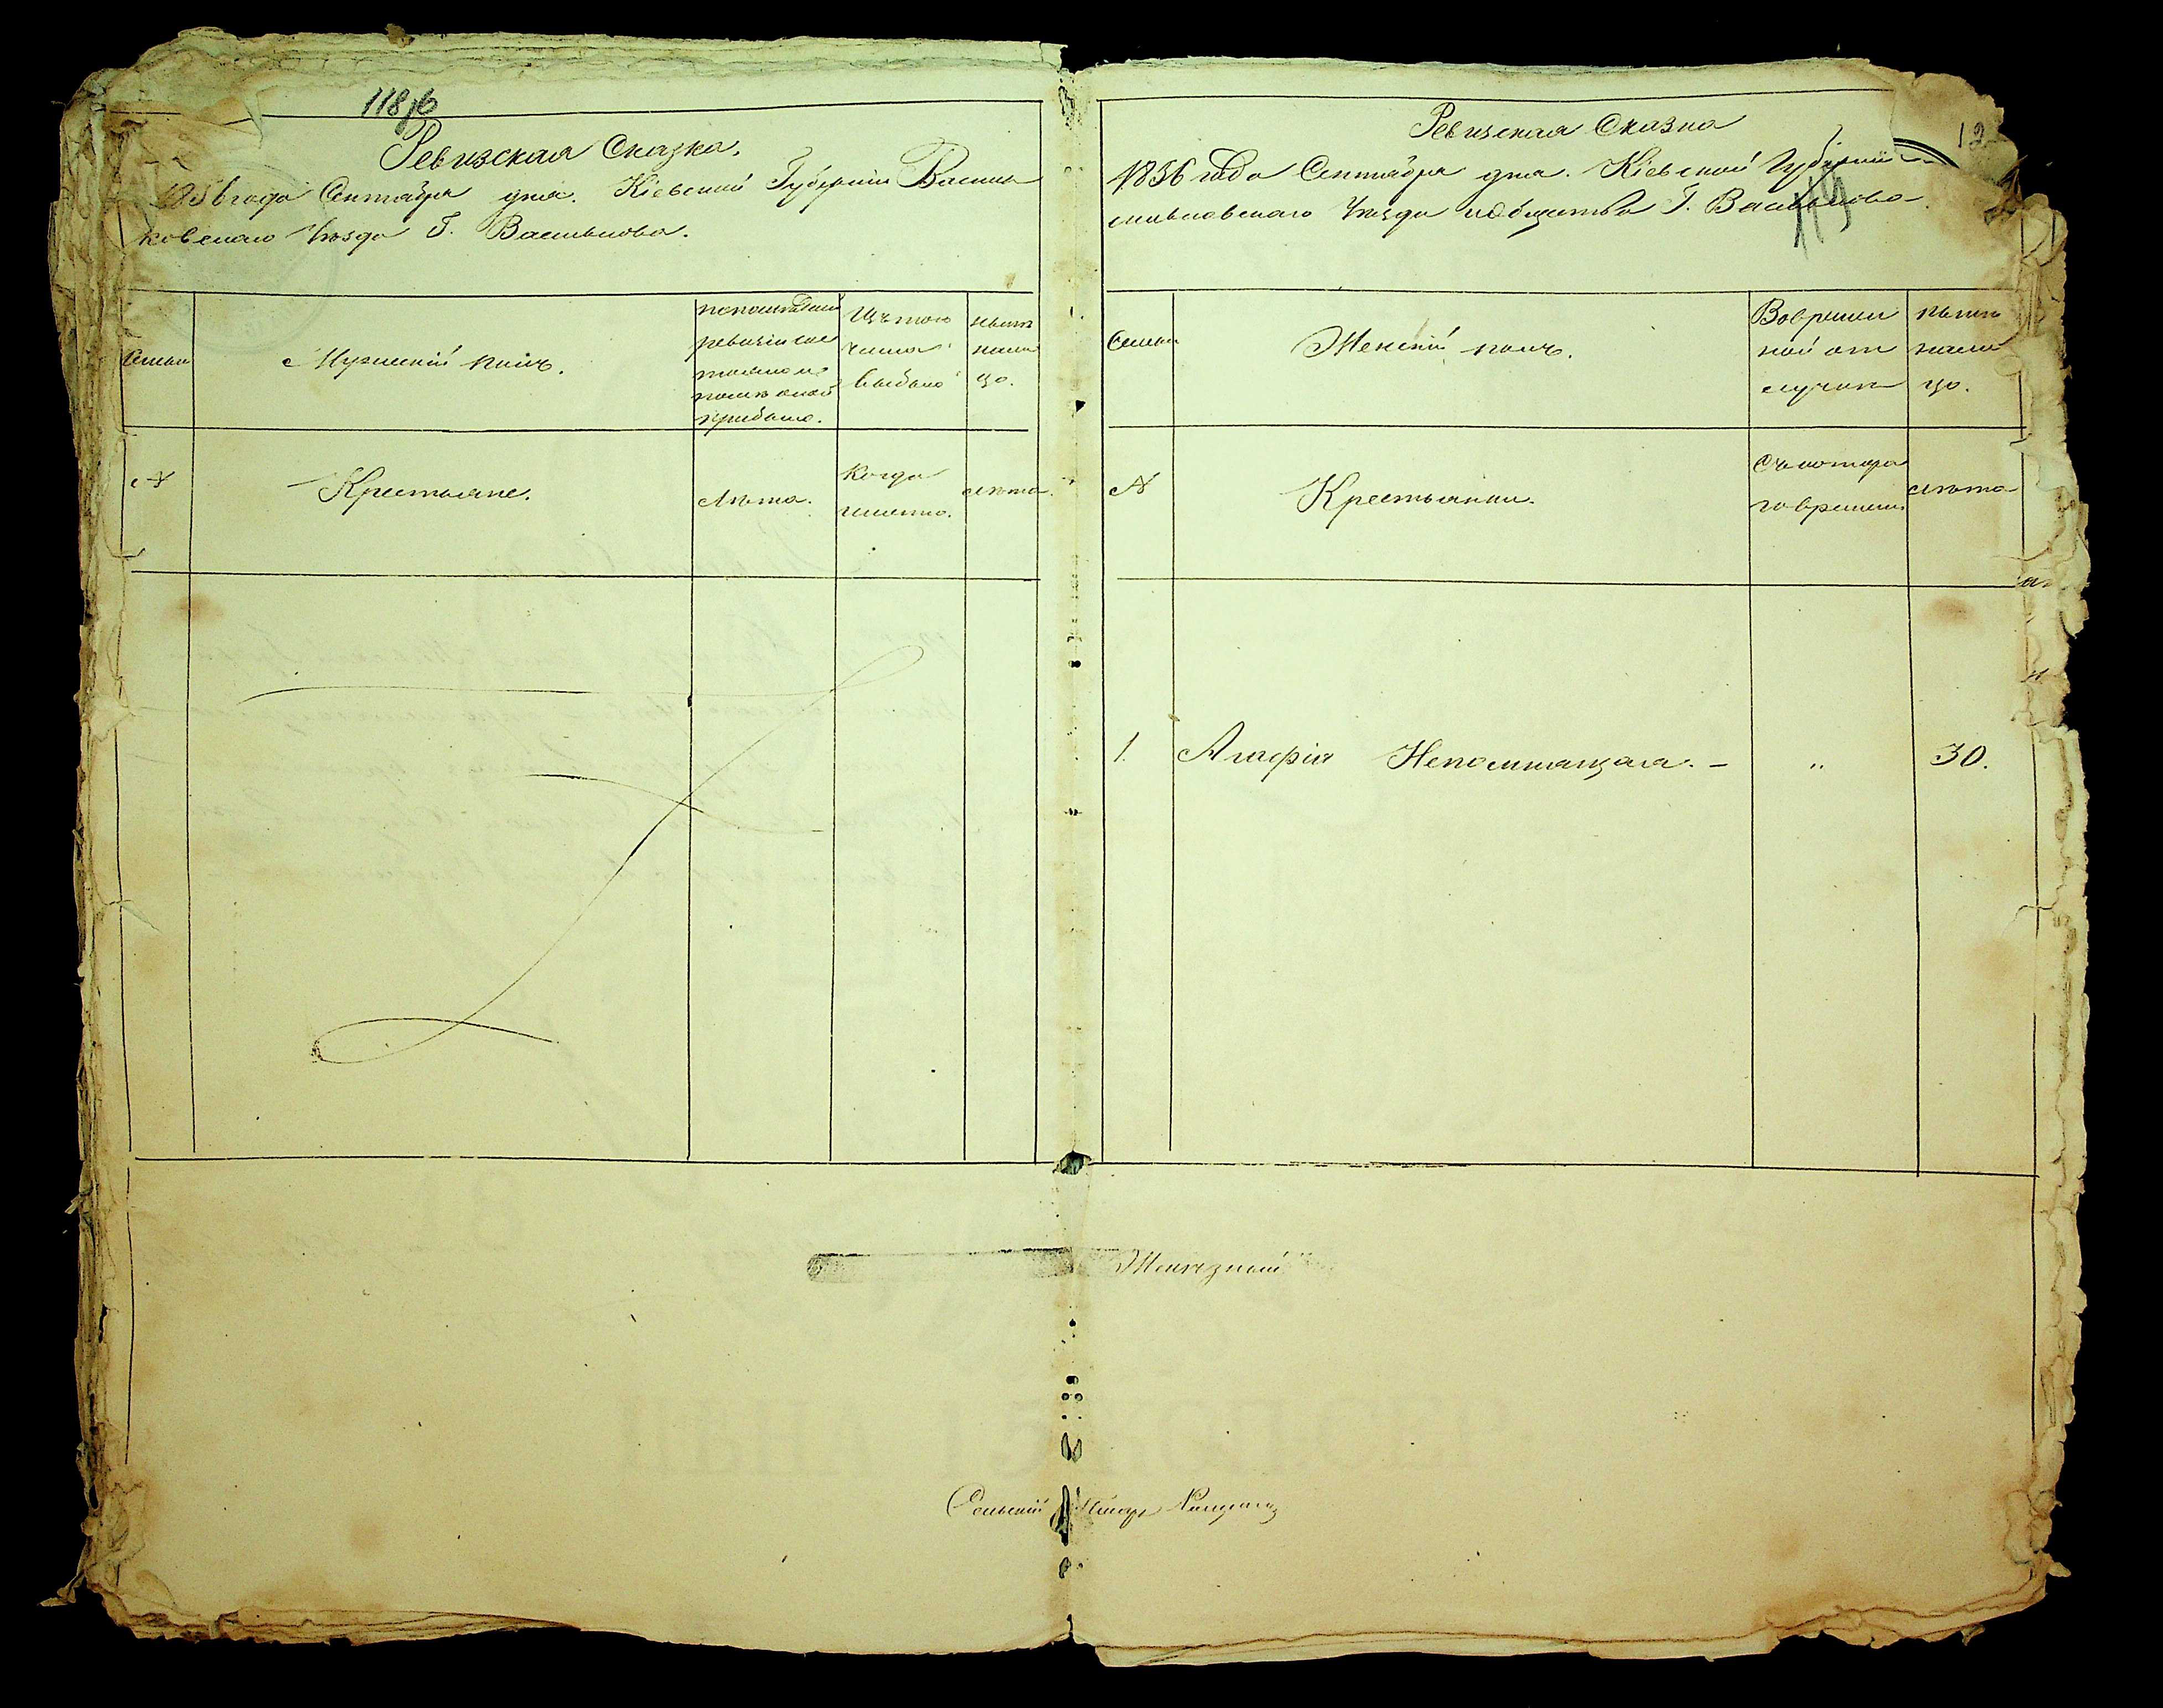 118 об
Ревизская Сказка.
1856 года Сентября дня. Кіевской Губерніи Василь
ковскаго Уѣзда Г. Василькова.
Семьи
Мужескій полъ.
по последней
ревизіи сос
тояло и
после оной
прибыло.
Изъ того
числа
выбыло
нынѣ
на ли
цо.
№
Крестьяне.
Лѣта.
Когда
именно.
Лѣта.
Ревизская Сказка
1856 года Сентября дня. Кіевской Губерніи
Уѣзда Г. Василькова
12
119
Семьи
Женскій полъ.
Во времен
ной от
лучкѣ
нынѣ
нали
цо.
№
Крестьянки.
Съ котора
го времени
Лѣта
1. Агафія Непомнящая. — " 30.
Сельскій Писарь